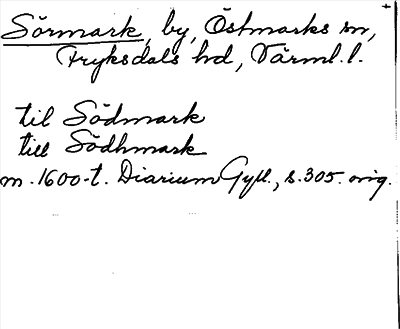 Sörmark, by, Östmarks sn,
Fryksdals hd, Värml. l.
til Södmark
till Södhmark
m. 1600-t. Diarium Gyll., s. 305. orig.